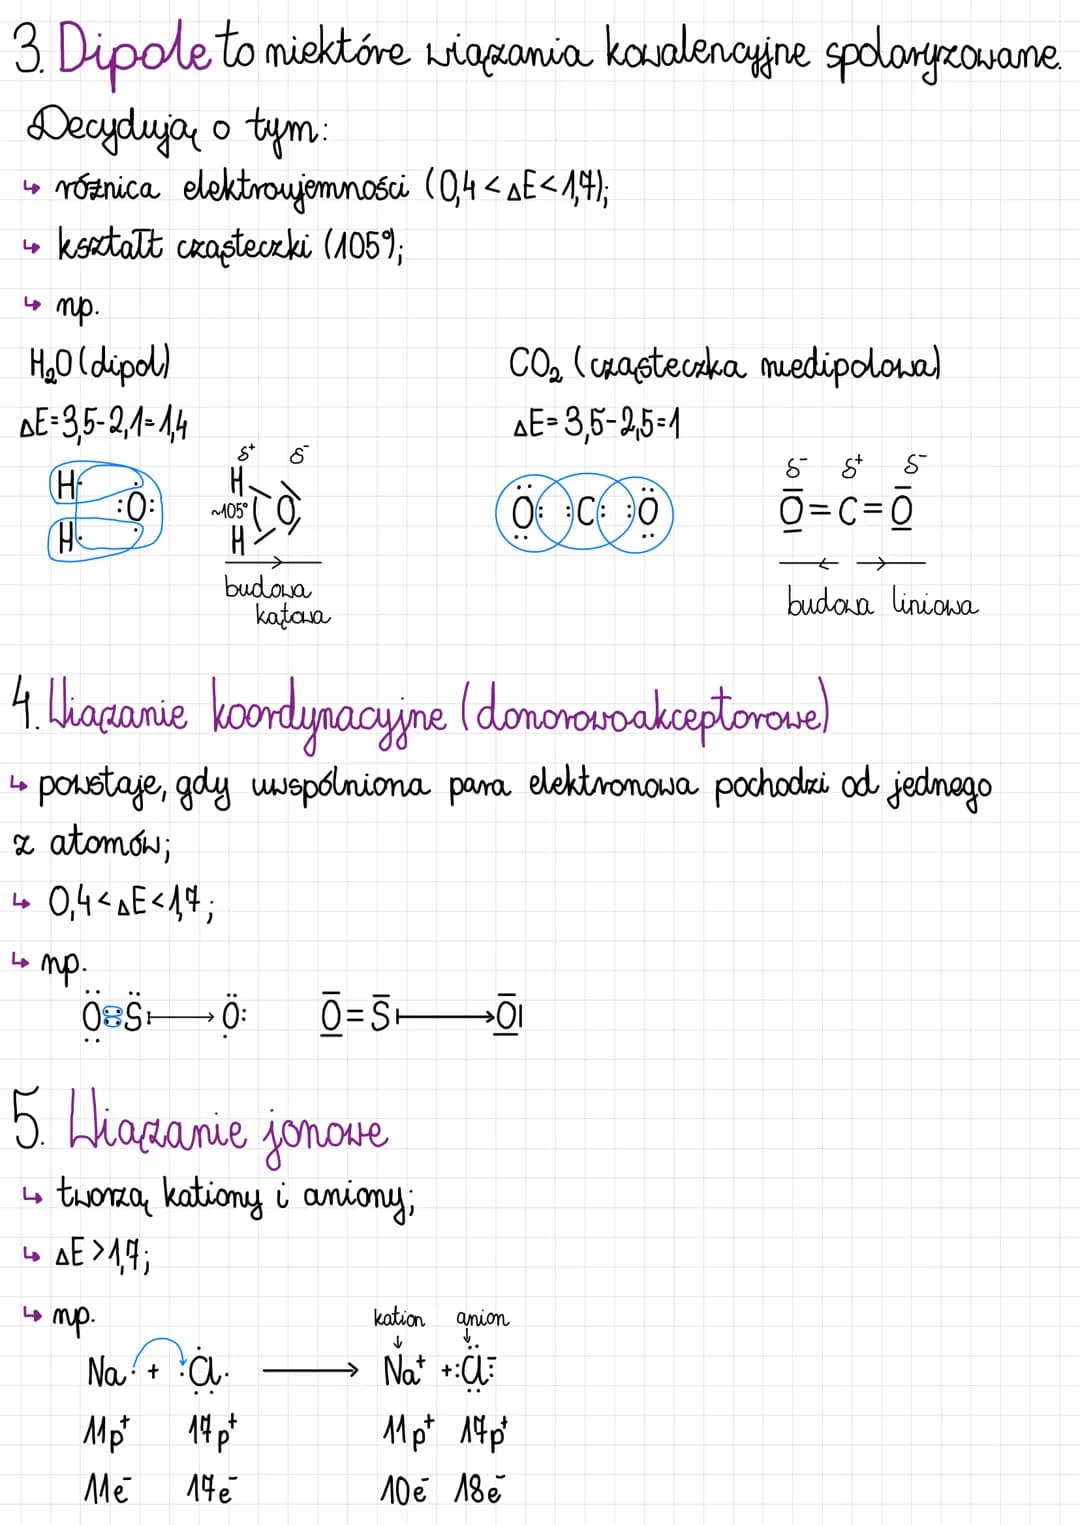 3. Dipole to niektóre wiązania kowalencyjne spolaryzowane.
Decydują o tym:
↳ różnica elektroujemności (0,4 < ΔE < 1,7);
↳ kształt cząsteczki (105°);
↳ np.
H₂O (dipol)
ΔE = 3,5 - 2,1 = 1,4
H
:O:
H
δ⁺ δ⁻
H
~105° O
H
budowa
kątowa
CO₂ (cząsteczka niedipolowa)
ΔE = 3,5 - 2,5 = 1
O: :C: :O
δ⁻ δ⁺ δ⁻
O = C = O
← →
budowa liniowa
4. Wiązanie koordynacyjne (donorowoakceptorowe)
↳ powstaje, gdy uwspólniona para elektronowa pochodzi od jednego
z atomów;
↳ 0,4 < ΔE < 1,7;
↳ np.
O::S ⟼ O: O = S ⟼ O|
5. Wiązanie jonowe
↳ tworzą kationy i aniony;
↳ ΔE > 1,7;
↳ np.
kation anion
↓ ↓
Na· + :Cl· ⟶ Na⁺ + :Cl:⁻
11p⁺ 17p⁺ 11p⁺ 17p⁺
11e⁻ 17e⁻ 10e⁻ 18e⁻